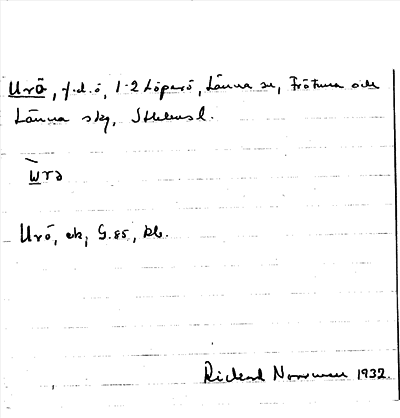 Urö, f.d. ö, 1-2 Löparö, Länna sn, Frötuna och
Länna skg, Sthlms l.
wrɔ
Urö, ek, G. 85, kb.
Rickard 1932.